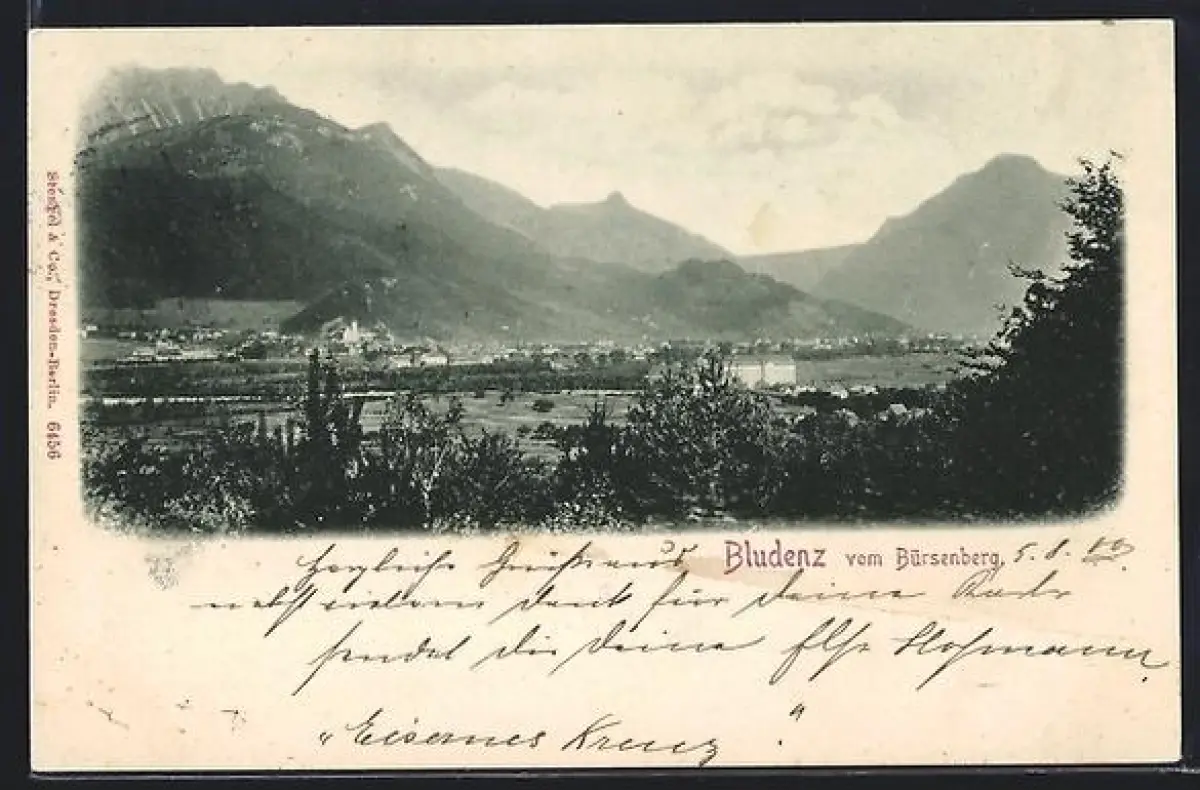 Stengel & Co., Dresden-Berlin. 6456
Bludenz vom Bürsenberg.
Herzliche Grüße aus 5. 8.
nebst vielem Dank für deine Karte
sendet dir deine Else Hofmann.
„Eisernes Kreuz"